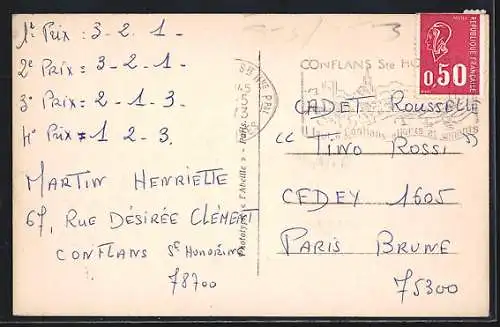 1er Prix : 3 - 2. 1 -
2e Prix = 3 - 2 - 1 -
3e Prix = 2 - 1 - 3 -
4e Prix = 1 2 - 3.
MARTIN HENRIETTE
67, RUE DÉSIRÉE CLÉMENT
CONFLANS Ste HONORINE
78700
Phototypie « l'Abeille » - Paris
CONFLANS Ste HO
REPUBLIQUE FRANÇAISE
0,50
CADET ROUSSELLE
"TINO ROSSI"
CEDEY 1605
PARIS BRUNE
75300